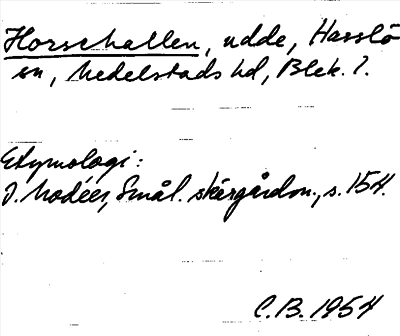 Horschallen, udde, Hasslö
en, Medelstads hd, Blek. l.
Etymologi:
I. Modéer, Smål. skärgårdsn., s. 154.
C.B. 1954